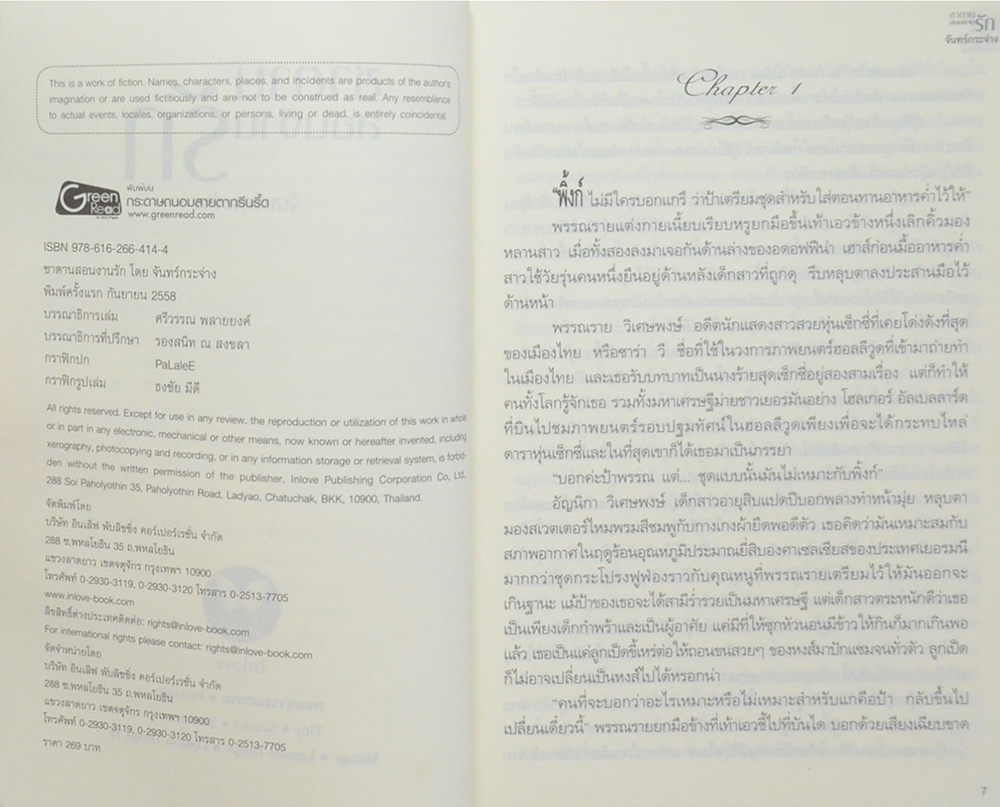 This is a work of fiction. Names, characters, places, and incidents are products of the authors
imagination or are used fictitiously and are not to be construed as real. Any resemblance
to actual events, locales, organizations, or persons, living or dead, is entirely coincidental.
Green
Read
พิมพ์บน
กระดาษถนอมสายตากรีนรี้ด
www.greenread.com
ISBN 978-616-266-414-4
ซาตานสอนงานรัก โดย จันทร์กระจ่าง
พิมพ์ครั้งแรก กันยายน 2558
บรรณาธิการเล่ม ศรีวรรณ พลายยงค์
บรรณาธิการที่ปรึกษา รองสนิท ณ สงขลา
กราฟิกปก PaLaleE
กราฟิกรูปเล่ม ธงชัย มีดี
All rights reserved. Except for use in any review, the reproduction or utilization of this work in whole
or in part in any electronic, mechanical or other means, now known or hereafter invented, including
xerography, photocopying and recording, or in any information storage or retrieval system, is forbid-
den without the written permission of the publisher, Inlove Publishing Corporation Co, Ltd.
288 Soi Paholyothin 35, Paholyothin Road, Ladyao, Chatuchak, BKK, 10900, Thailand.
จัดพิมพ์โดย
บริษัท อินเลิฟ พับลิชชิ่ง คอร์เปอร์เรชั่น จำกัด
288 ซ.พหลโยธิน 35 ถ.พหลโยธิน
แขวงลาดยาว เขตจตุจักร กรุงเทพฯ 10900
โทรศัพท์ 0-2930-3119, 0-2930-3120 โทรสาร 0-2513-7705
www.inlove-book.com
ลิขสิทธิ์ต่างประเทศติดต่อ: rights@inlove-book.com
For international rights please contact: rights@inlove-book.com
จัดจำหน่ายโดย
บริษัท อินเลิฟ พับลิชชิ่ง คอร์เปอร์เรชั่น จำกัด
288 ซ.พหลโยธิน 35 ถ.พหลโยธิน
แขวงลาดยาว เขตจตุจักร กรุงเทพฯ 10900
โทรศัพท์ 0-2930-3119, 0-2930-3120 โทรสาร 0-2513-7705
ราคา 269 บาท
ซาตานสอนงานรัก
จันทร์กระจ่าง
Chapter 1
“พิ้งก์ ไม่มีใครบอกแกรึ ว่าป้าเตรียมชุดสำหรับใส่ตอนทานอาหารค่ำไว้ให้”
พรรณรายแต่งกายเนี้ยบเรียบหรูยกมือขึ้นเท้าเอวข้างหนึ่งเลิกคิ้วมอง
หลานสาว เมื่อทั้งสองลงมาเจอกันด้านล่างของอดอฟฟีน่า เฮาส์ก่อนมื้ออาหารค่ำ
สาวใช้วัยรุ่นคนหนึ่งยืนอยู่ด้านหลังเด็กสาวที่ถูกดุ รีบหลุบตาลงประสานมือไว้
ด้านหน้า
พรรณราย วิเศษพงษ์ อดีตนักแสดงสาวสวยหุ่นเซ็กซี่ที่เคยโด่งดังที่สุด
ของเมืองไทย หรือซาร่า วี ชื่อที่ใช้ในวงการภาพยนตร์ฮอลลีวูดที่เข้ามาถ่ายทำ
ในเมืองไทย และเธอรับบทบาทเป็นนางร้ายสุดเซ็กซี่อยู่สองสามเรื่อง แต่ก็ทำให้
คนทั้งโลกรู้จักเธอ รวมทั้งมหาเศรษฐีม่ายชาวเยอรมันอย่าง โฮลเกอร์ อัลเบลลาร์ด
ที่บินไปชมภาพยนตร์รอบปฐมทัศน์ในฮอลลีวูดเพียงเพื่อจะได้กระทบไหล่
ดาราหุ่นเซ็กซี่และในที่สุดเขาก็ได้เธอมาเป็นภรรยา
“บอกค่ะป้าพรรณ แต่... ชุดแบบนั้นมันไม่เหมาะกับพิ้งก์”
อัญนิกา วิเศษพงษ์ เด็กสาวอายุสิบแปดปีบอกพลางทำหน้ามุ่ย หลุบตา
มองสเวตเตอร์ไหมพรมสีชมพูกับกางเกงผ้ายืดพอดีตัว เธอคิดว่ามันเหมาะสมกับ
สภาพอากาศในฤดูร้อนอุณหภูมิประมาณยี่สิบองศาเซลเซียสของประเทศเยอรมนี
มากกว่าชุดกระโปรงฟูฟ่องราวกับคุณหนูที่พรรณรายเตรียมไว้ให้มันออกจะ
เกินฐานะ แม้ป้าของเธอจะได้สามีร่ำรวยเป็นมหาเศรษฐี แต่เด็กสาวตระหนักดีว่าเธอ
เป็นเพียงเด็กกำพร้าและเป็นผู้อาศัย แค่มีที่ให้ซุกหัวนอนมีข้าวให้กินก็มากเกินพอ
แล้ว เธอเป็นแค่ลูกเป็ดขี้เหร่ต่อให้ถอนขนสวยๆ ของหงส์มาปักแซมจนทั่วตัว ลูกเป็ด
ก็ไม่อาจเปลี่ยนเป็นหงส์ไปได้หรอกน่า
“คนที่จะบอกว่าอะไรเหมาะหรือไม่เหมาะสำหรับแกคือป้า กลับขึ้นไป
เปลี่ยนเดี๋ยวนี้” พรรณรายยกมือข้างที่เท้าเอวชี้ไปที่บันได บอกด้วยเสียงเฉียบขาด
7